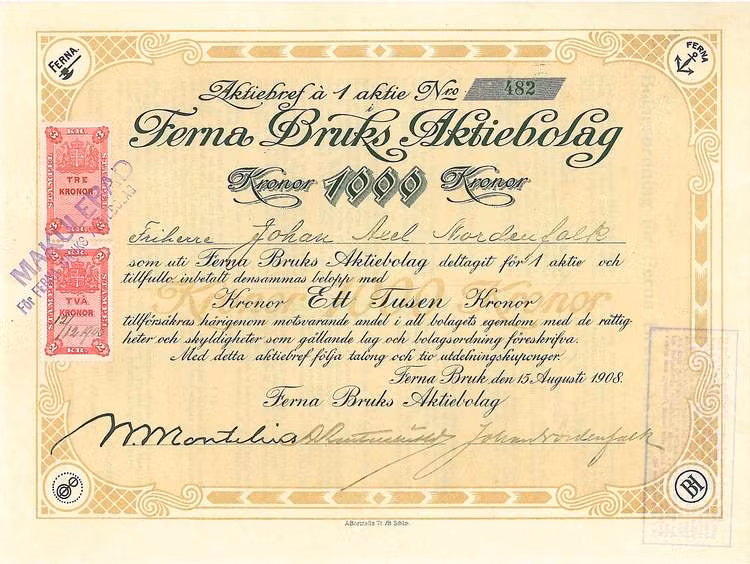 FERNA.
FERNA
Aktiebref à 1 aktie Nro 482
Ferna Bruks Aktiebolag
Kronor 1000 Kronor
3 KR. 3
STÄMPEL STÄMPEL
TRE
KRONOR
MAKULERAD
För FERNA BRUKS AKTIEBOLAG
Friherre Johan Axel Nordenfalk
som uti Ferna Bruks Aktiebolag deltagit för 1 aktie och
tillfullo inbetalt densammas belopp med
2 KR. 2
STÄMPEL STÄMPEL
TVÅ
KRONOR
Kronor Ett Tusen Kronor
tillförsäkras härigenom motsvarande andel i all bolagets egendom med de rättig-
heter och skyldigheter som gällande lag och bolagsordning föreskrifva.
Med detta aktiebref följa talong och tio utdelningskuponger.
Ferna Bruk den 15 Augusti 1908.
Ferna Bruks Aktiebolag
W. Montelius Johan Nordenfalk
BH